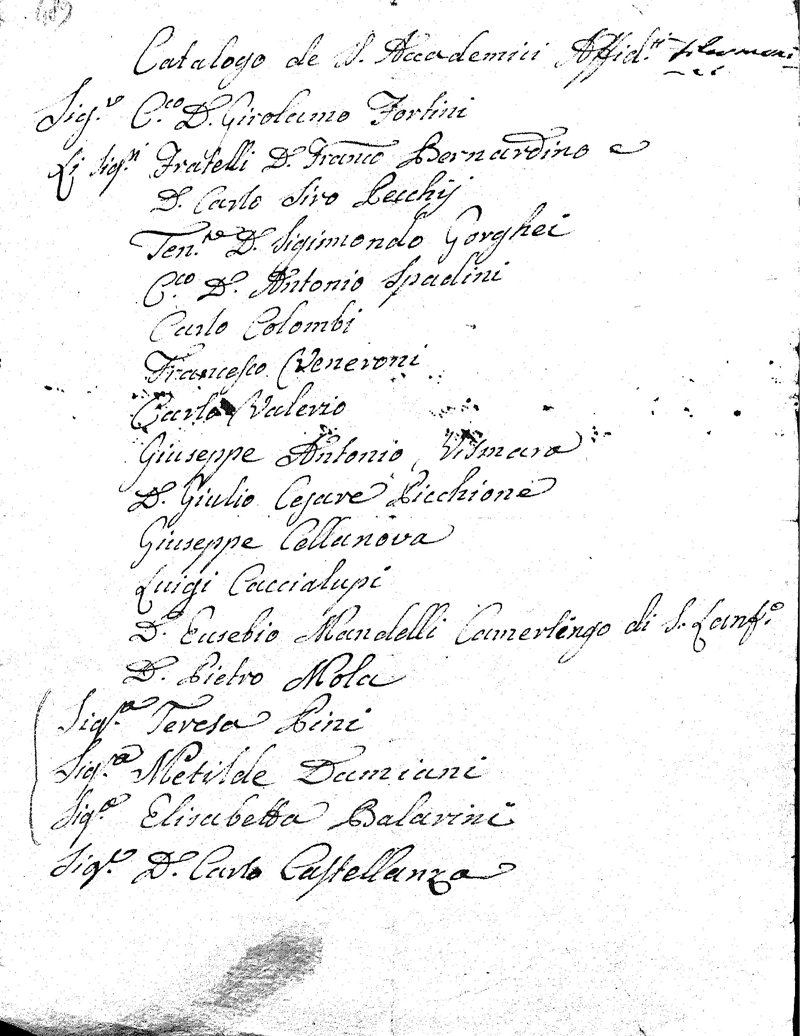 Catalogo de S. Accademici Affid.ti Filarmoni
ci
Sig.r C.co D. Girolamo Fortini
Li Sig.ri Fratelli D. Franco Bernardino e
D. Carlo Siro Pecchij
Ten.te D. Sigismondo Gorghei
C.co D. Antonio Spadini
Carlo Colombi
Francesco Veneroni
Carlo Valerio
Giuseppe Antonio Vismara
D. Giulio Cesare Picchione
Giuseppe Cellanova
Luigi Caccialupi
D. Eusebio Mandelli Camerlengo di S. Lanf.o
D. Pietro Mola
Sig.a Teresa Pini
Sig.a Metilde Damiani
Sig.a Elisabetta Balarini
Sig.r D. Carlo Castellanza